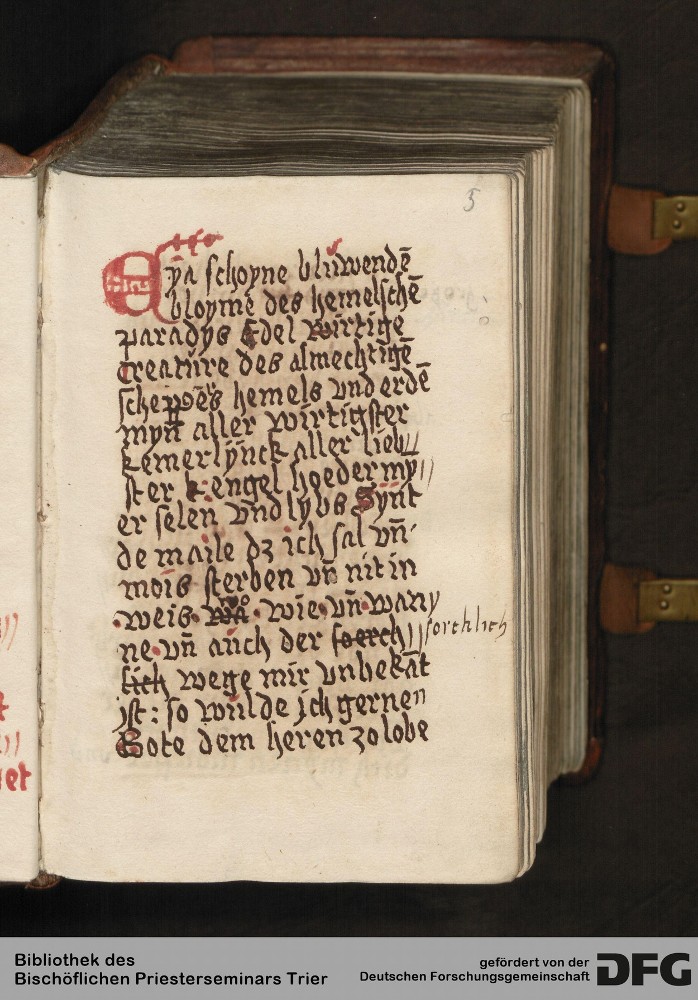 5
Eya schoyne bluwendē
bloyme des hemelschē
paradys Edel wirtige
creature des almechtigē
scheppers hemels vnd erdē
myn̄ aller wirtigster
kemerlynck aller lieb//
ster k:engel hoeder my//
er selen vnd lybs Synt
de maile dz ich sal vn̄
mois sterben vn̄ nit in
weis wa wie vn̄ wan
ne vn̄ auch der foerch// forchlich
lich wege mir vnbekāt
yst: so wulde ich gerne
Gote dem heren zo lobe
et
Bibliothek des
Bischöflichen Priesterseminars Trier
gefördert von der
Deutschen Forschungsgemeinschaft
DFG